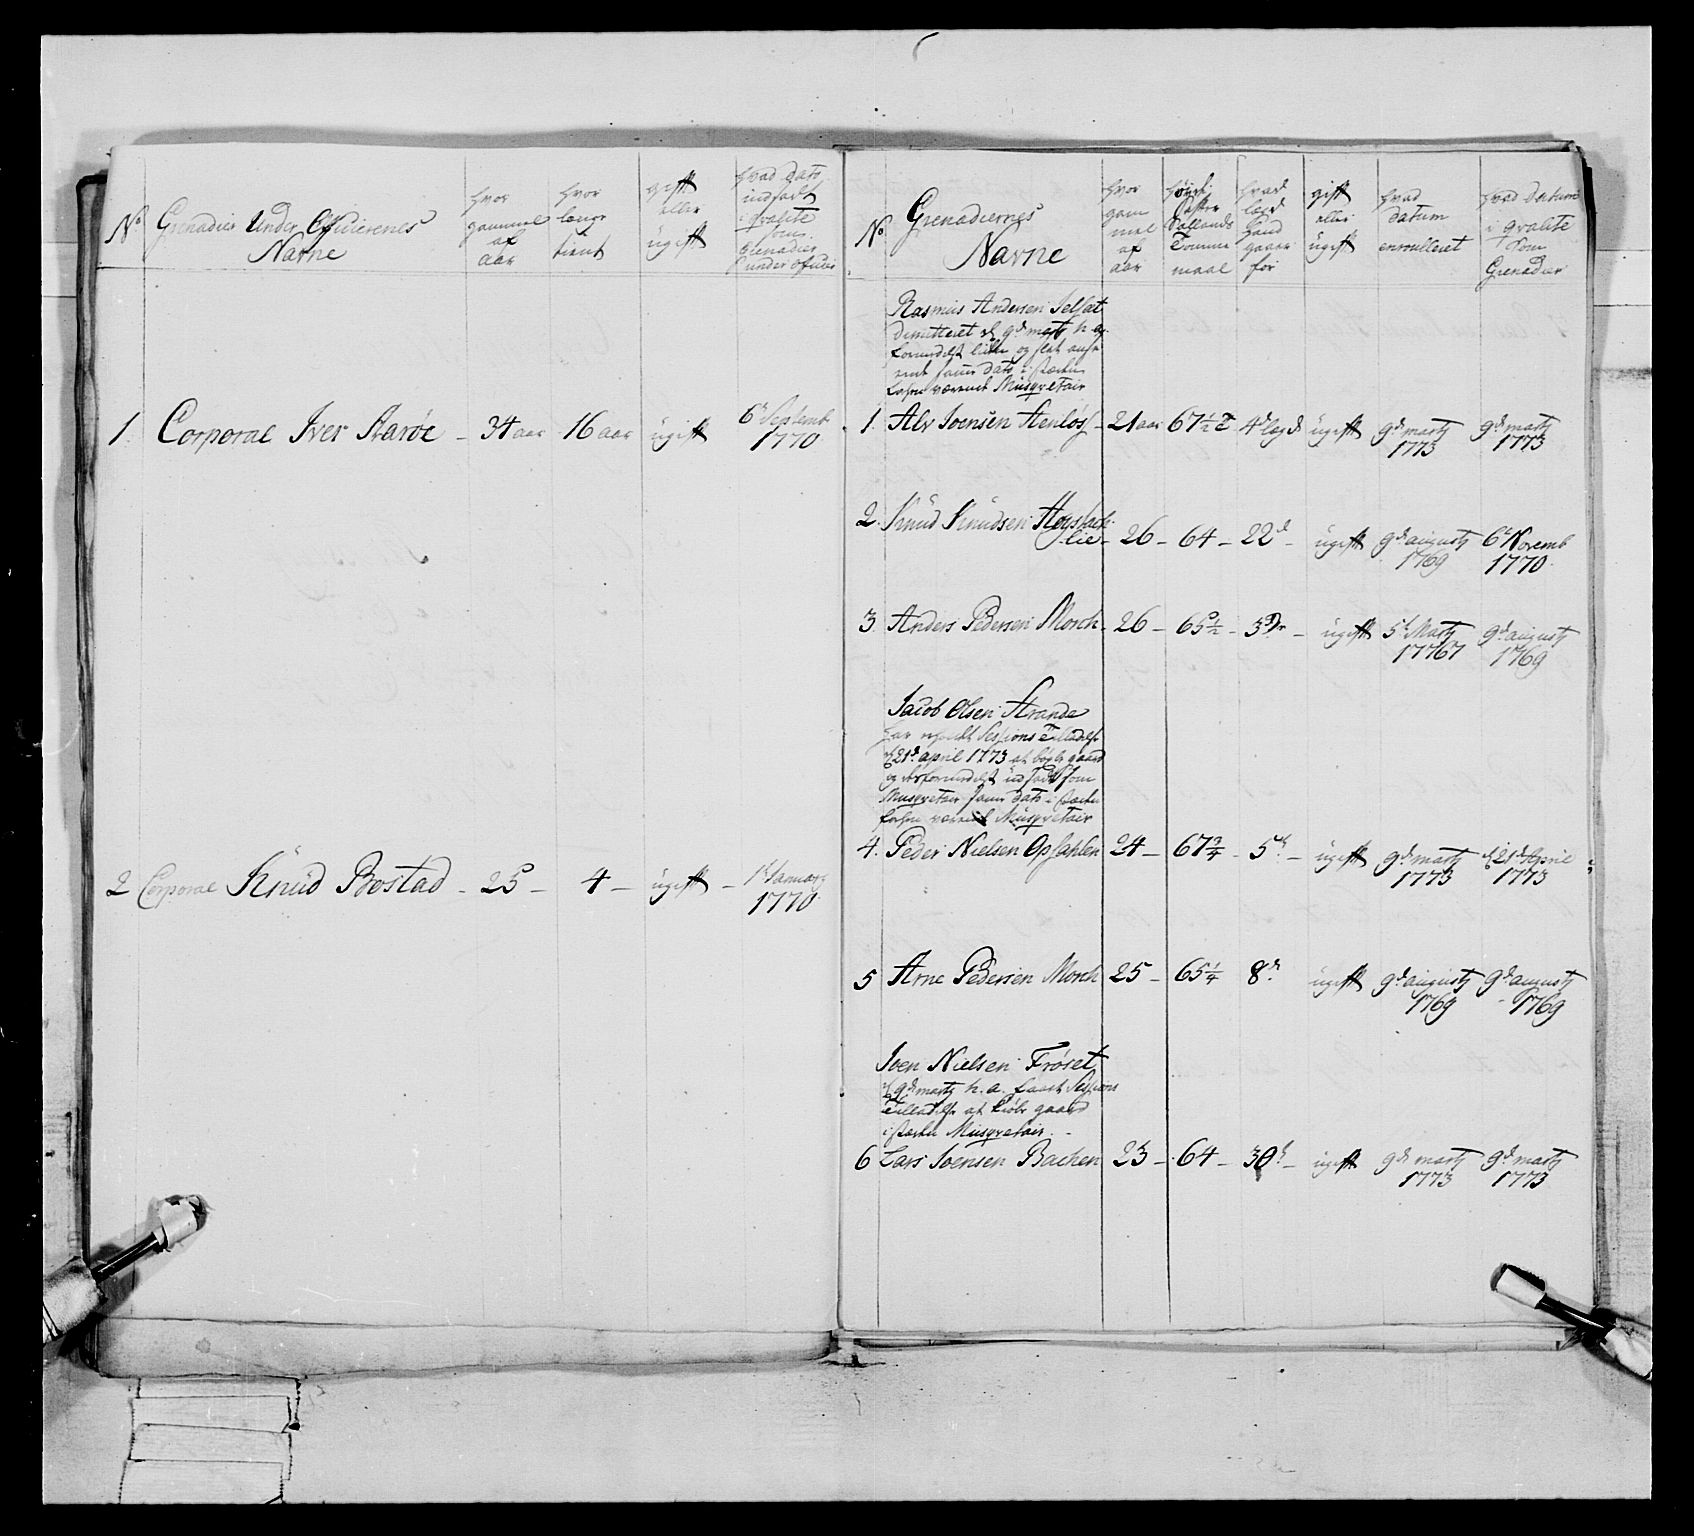 No
Grenadier Under Officierenes
Navne
hvor
gammel
af
aar
hvor
lenge
tient
gift
eller
ugift
hvad dato
indsadt
i qvalite
som
Grenadier
under officir
1. Corporal Iver Aarøe - 34 aar 16 aar ugift 6t Septemb
1770
2 Corporal Knüd Bostad - 25 - 4 - ugift - 1t Januarj
1770
No
Grenadiernes
Navne
hvor
gam
mel
af
aar
høide
efter
Sallands
Tomme
maal
hvad
lægd
hand
gaaer
for
gift
eller
ugift
hvad
datum
enroulleret
hvad datum
i qvalite
som
Grenadier
Rasmus Andersen Selsat
dimitteret d 9de marty h. a.
formedelst liden og slet
samme dato i stæden
forhen værende Müsqvetair
1. Alv Joensen Stenløs - 21 aar 67 1/2 T 4d lægd ugift 9de marty
1773 9de marty
1773
2. Knüd Knüdsen
lie - 26 - 64 - 22d - ugift 9de augusty
1769 6t Novemb
1770
3. Anders Pedersen Morch - 26 - 65 1/2 - 5 - ugift 5t Marty
17767 9de augusty
1769
Jacob Olsen Strande
har Sessions Tilladelse
d 21de april 1773 at bøxle gaard
og derformedelst udsadt som
Müsqvetair samme dato i stæden
forhen værende Müsqvetair
4. Peder Nielsen Opsahlen 24 - 67 3/4 - 5t - ugift 9de marty
1773 d 21de Aprilie
1773
5 Arne Pedersen Morch 25 - 65 1/4 8d ugift 9de augusty
1769 9de augusty
1769
Joen Nielsen Frøset
d 9de marty h. a. faaet Sessions
Tilladelse at kiøbe gaard
i stæden Müsqvetair.
6 Lars Joensen Bachen 23 - 64 - 30d - ugift 9de marty
1773 9de marty
1773